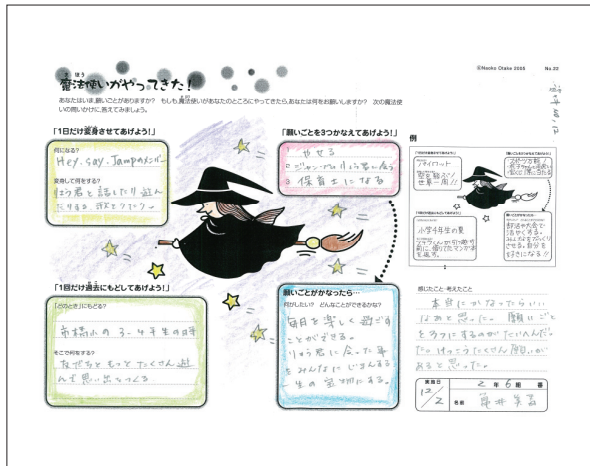 ©Naoko Otake 2005 No.22
魔法使いがやってきた!
あなたはいま、願いごとがありますか? もしも、魔法使いがあなたのところにやってきたら、あなたは何をお願いしますか? 次の魔法使
いの問いかけに、答えてみましょう。
「1日だけ変身させてあげよう!」
何になる?
Hey. Say. Jampのメンバー
変身して何をする?
りょう君と話したり遊ん
だりする 歌をうたう
「願いごとを3つかなえてあげよう!」
1 やせる
2 りょう君に会う
3 保育士になる
「1回だけ過去にもどしてあげよう!」
「どのとき」にもどる?
小の3~4年生の時
そこで何をする?
友だちともっとたくさん遊
んで思い出をつくる
願いごとがかなったら…
何がしたい? どんなことができるかな?
毎日を楽しく過ごす
ことができる。
りょう君に会った事
をみんなに
一生の宝物にする。
例
パイロット
空を飛ぶ!
世界一周!!
小学4年生の夏
感じたこと・考えたこと
本当にかなったらいい
なあと思った。願いごと
を3つにするのがたいへんだっ
た。けっこうたくさん願いが
あると思った。
実施日
12/2
2年6組 番
名前